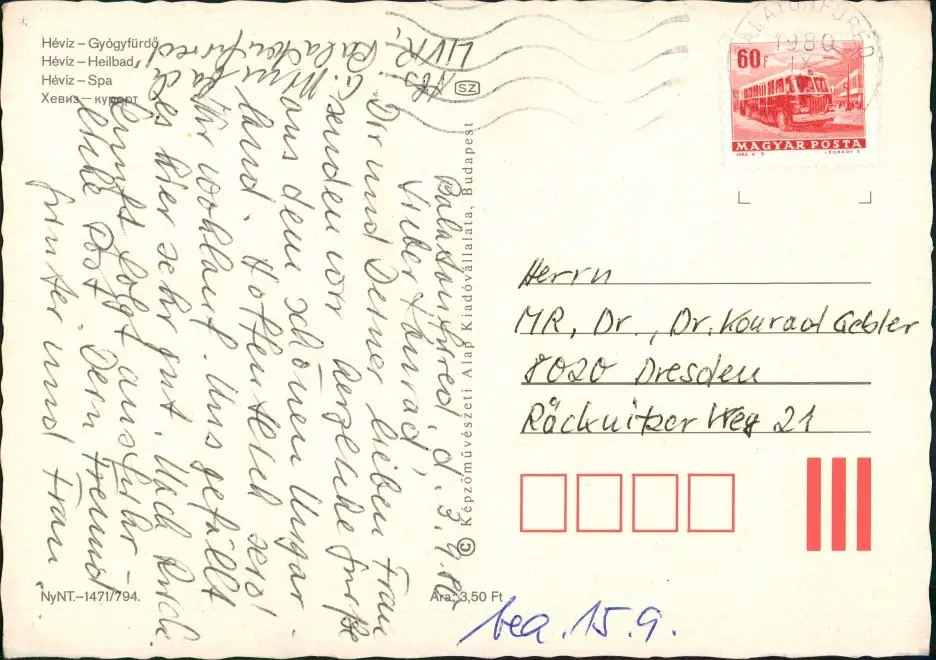 Hévíz – Gyógyfürdő
Hévíz – Heilbad
Hévíz – Spa
Хевиз – курорт
Balatonfüred, d. 3.9.80
Lieber Konrad,
Dir und Deiner lieben Frau
senden wir herzliche Grüße
aus dem schönen Ungar
land. Hoffentlich seid
Ihr wohlauf. Uns gefällt
es hier sehr gut. Nach
folgt ausführ-
liche Post. Dein Freund
Günter und Frau
Balatonfüred
NyNT.–1471/794.
Ára: 3,50 Ft
SZ
© Képzőművészeti Alap Kiadóvállalata, Budapest
BALATONFÜRED
1980
60F
MAGYAR POSTA
Herrn
MR, Dr., Dr. Konrad Gebler
8020 Dresden
Räcknitzer Weg 21
bea. 15.9.